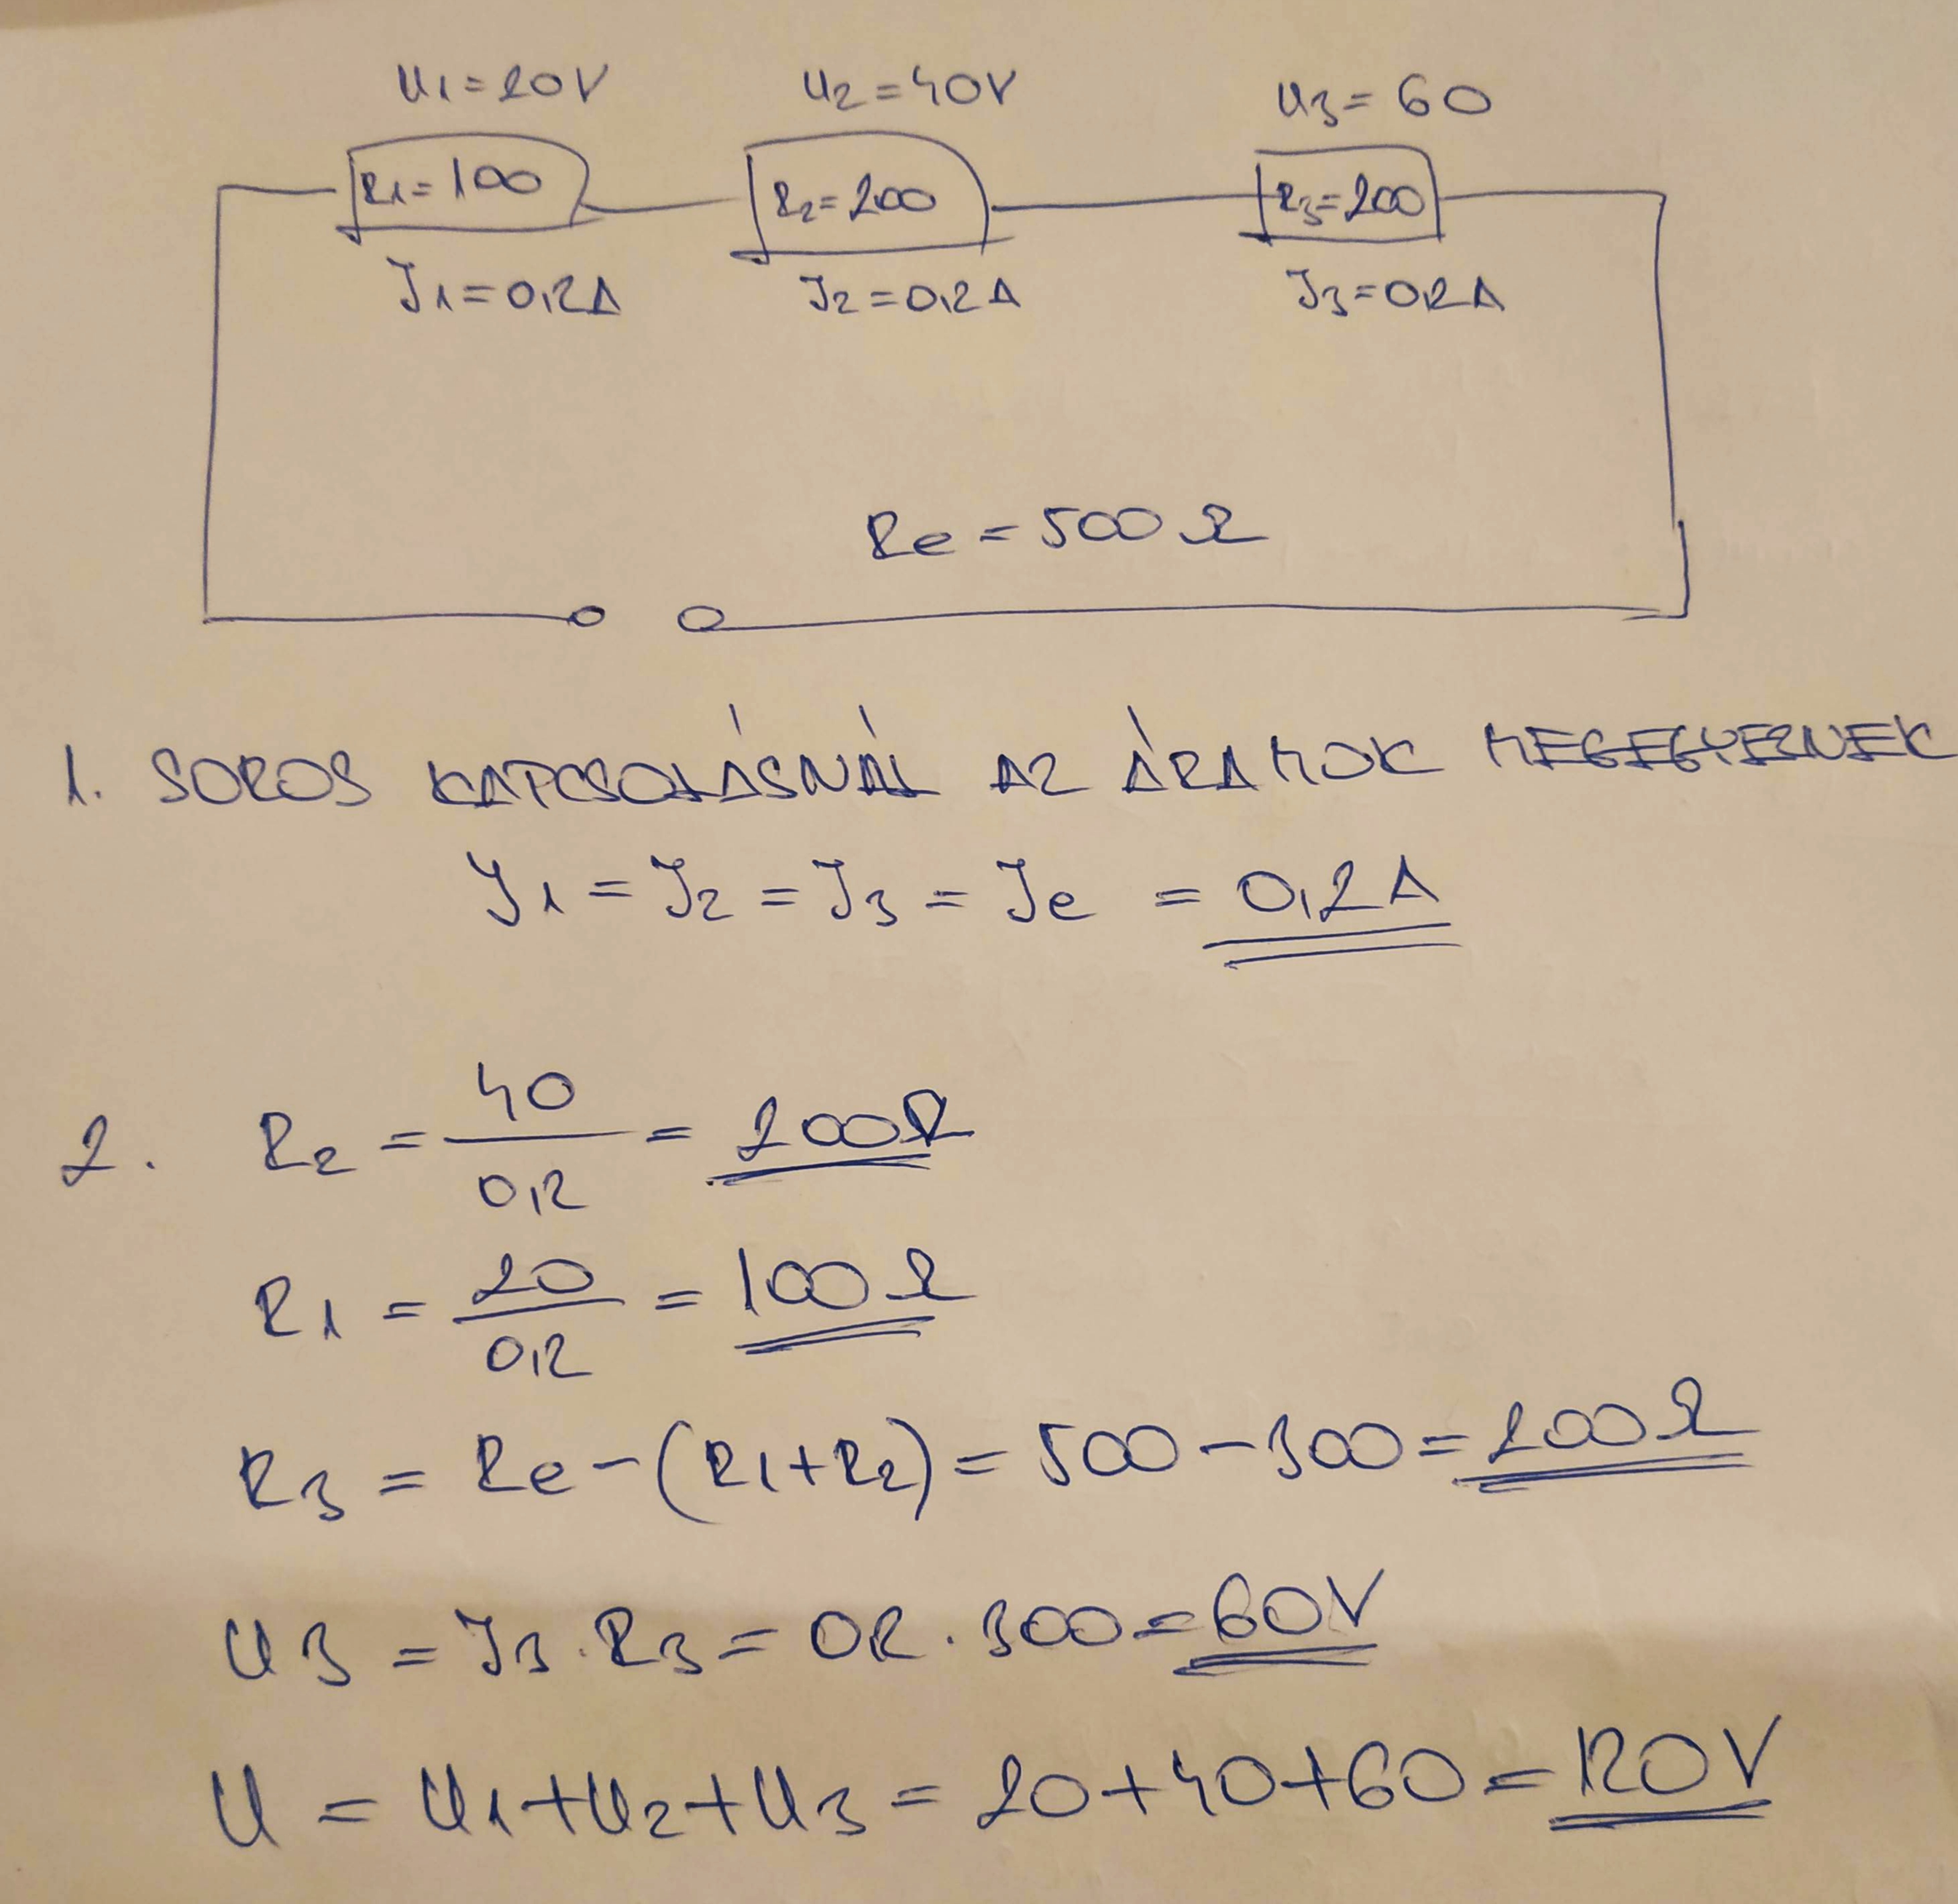 U1=20V U2=40V U3=60
R1=100 R2=200 R3=200
I1=0,2A I2=0,2A I3=0,2A
Re=500Ω
1. SOROS KAPCSOLÁSNÁL AZ ÁRAMOK MEGEGYEZNEK
I1=I2=I3=Ie=0,2A
2. R2=40/0,2=200Ω
R1=20/0,2=100Ω
R3=Re-(R1+R2)=500-300=200Ω
U3=I3·R3=0,2·300=60V
U=U1+U2+U3=20+40+60=120V